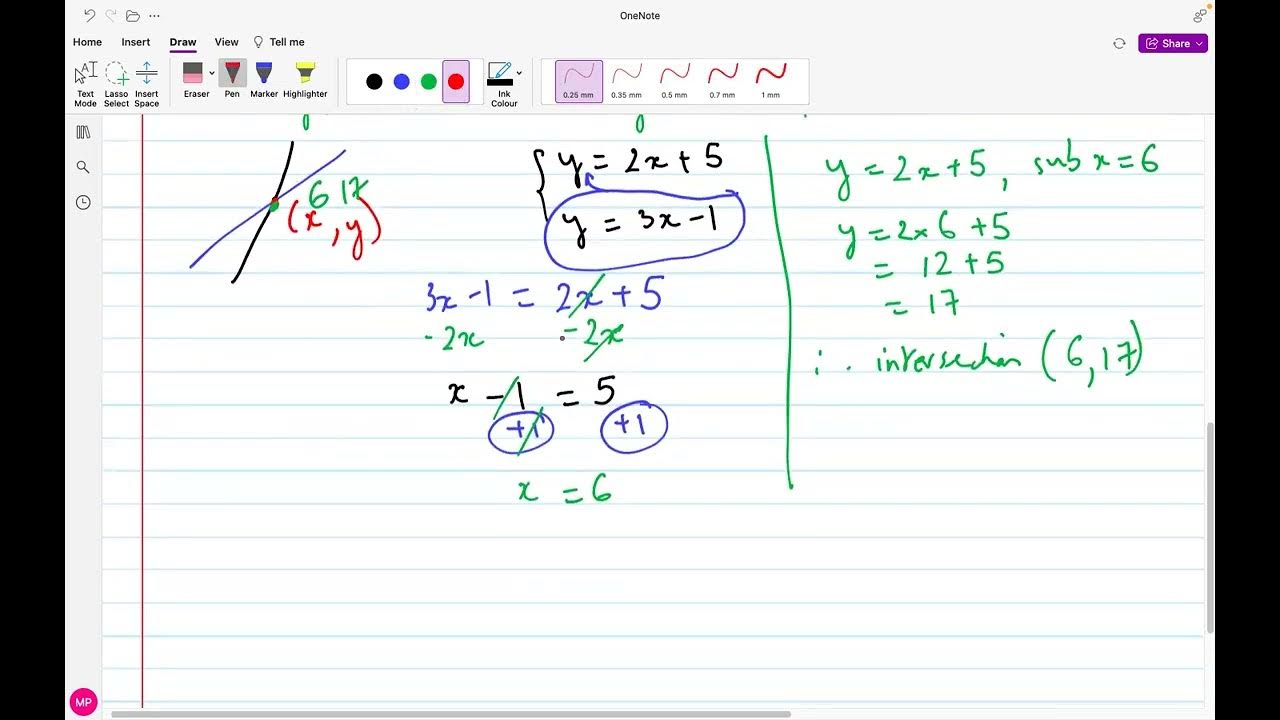 OneNote
Home Insert Draw View Tell me
Share
Text Mode
Lasso Select
Insert Space
Eraser
Pen
Marker
Highlighter
Ink Colour
0.25 mm
0.35 mm
0.5 mm
0.7 mm
1 mm
6 17
(x, y)
y = 2x + 5
y = 3x - 1
3x - 1 = 2x + 5
-2x -2x
x - 1 = 5
+1 +1
x = 6
y = 2x + 5, sub x = 6
y = 2x6 + 5
= 12 + 5
= 17
∴ intersection (6, 17)
MP